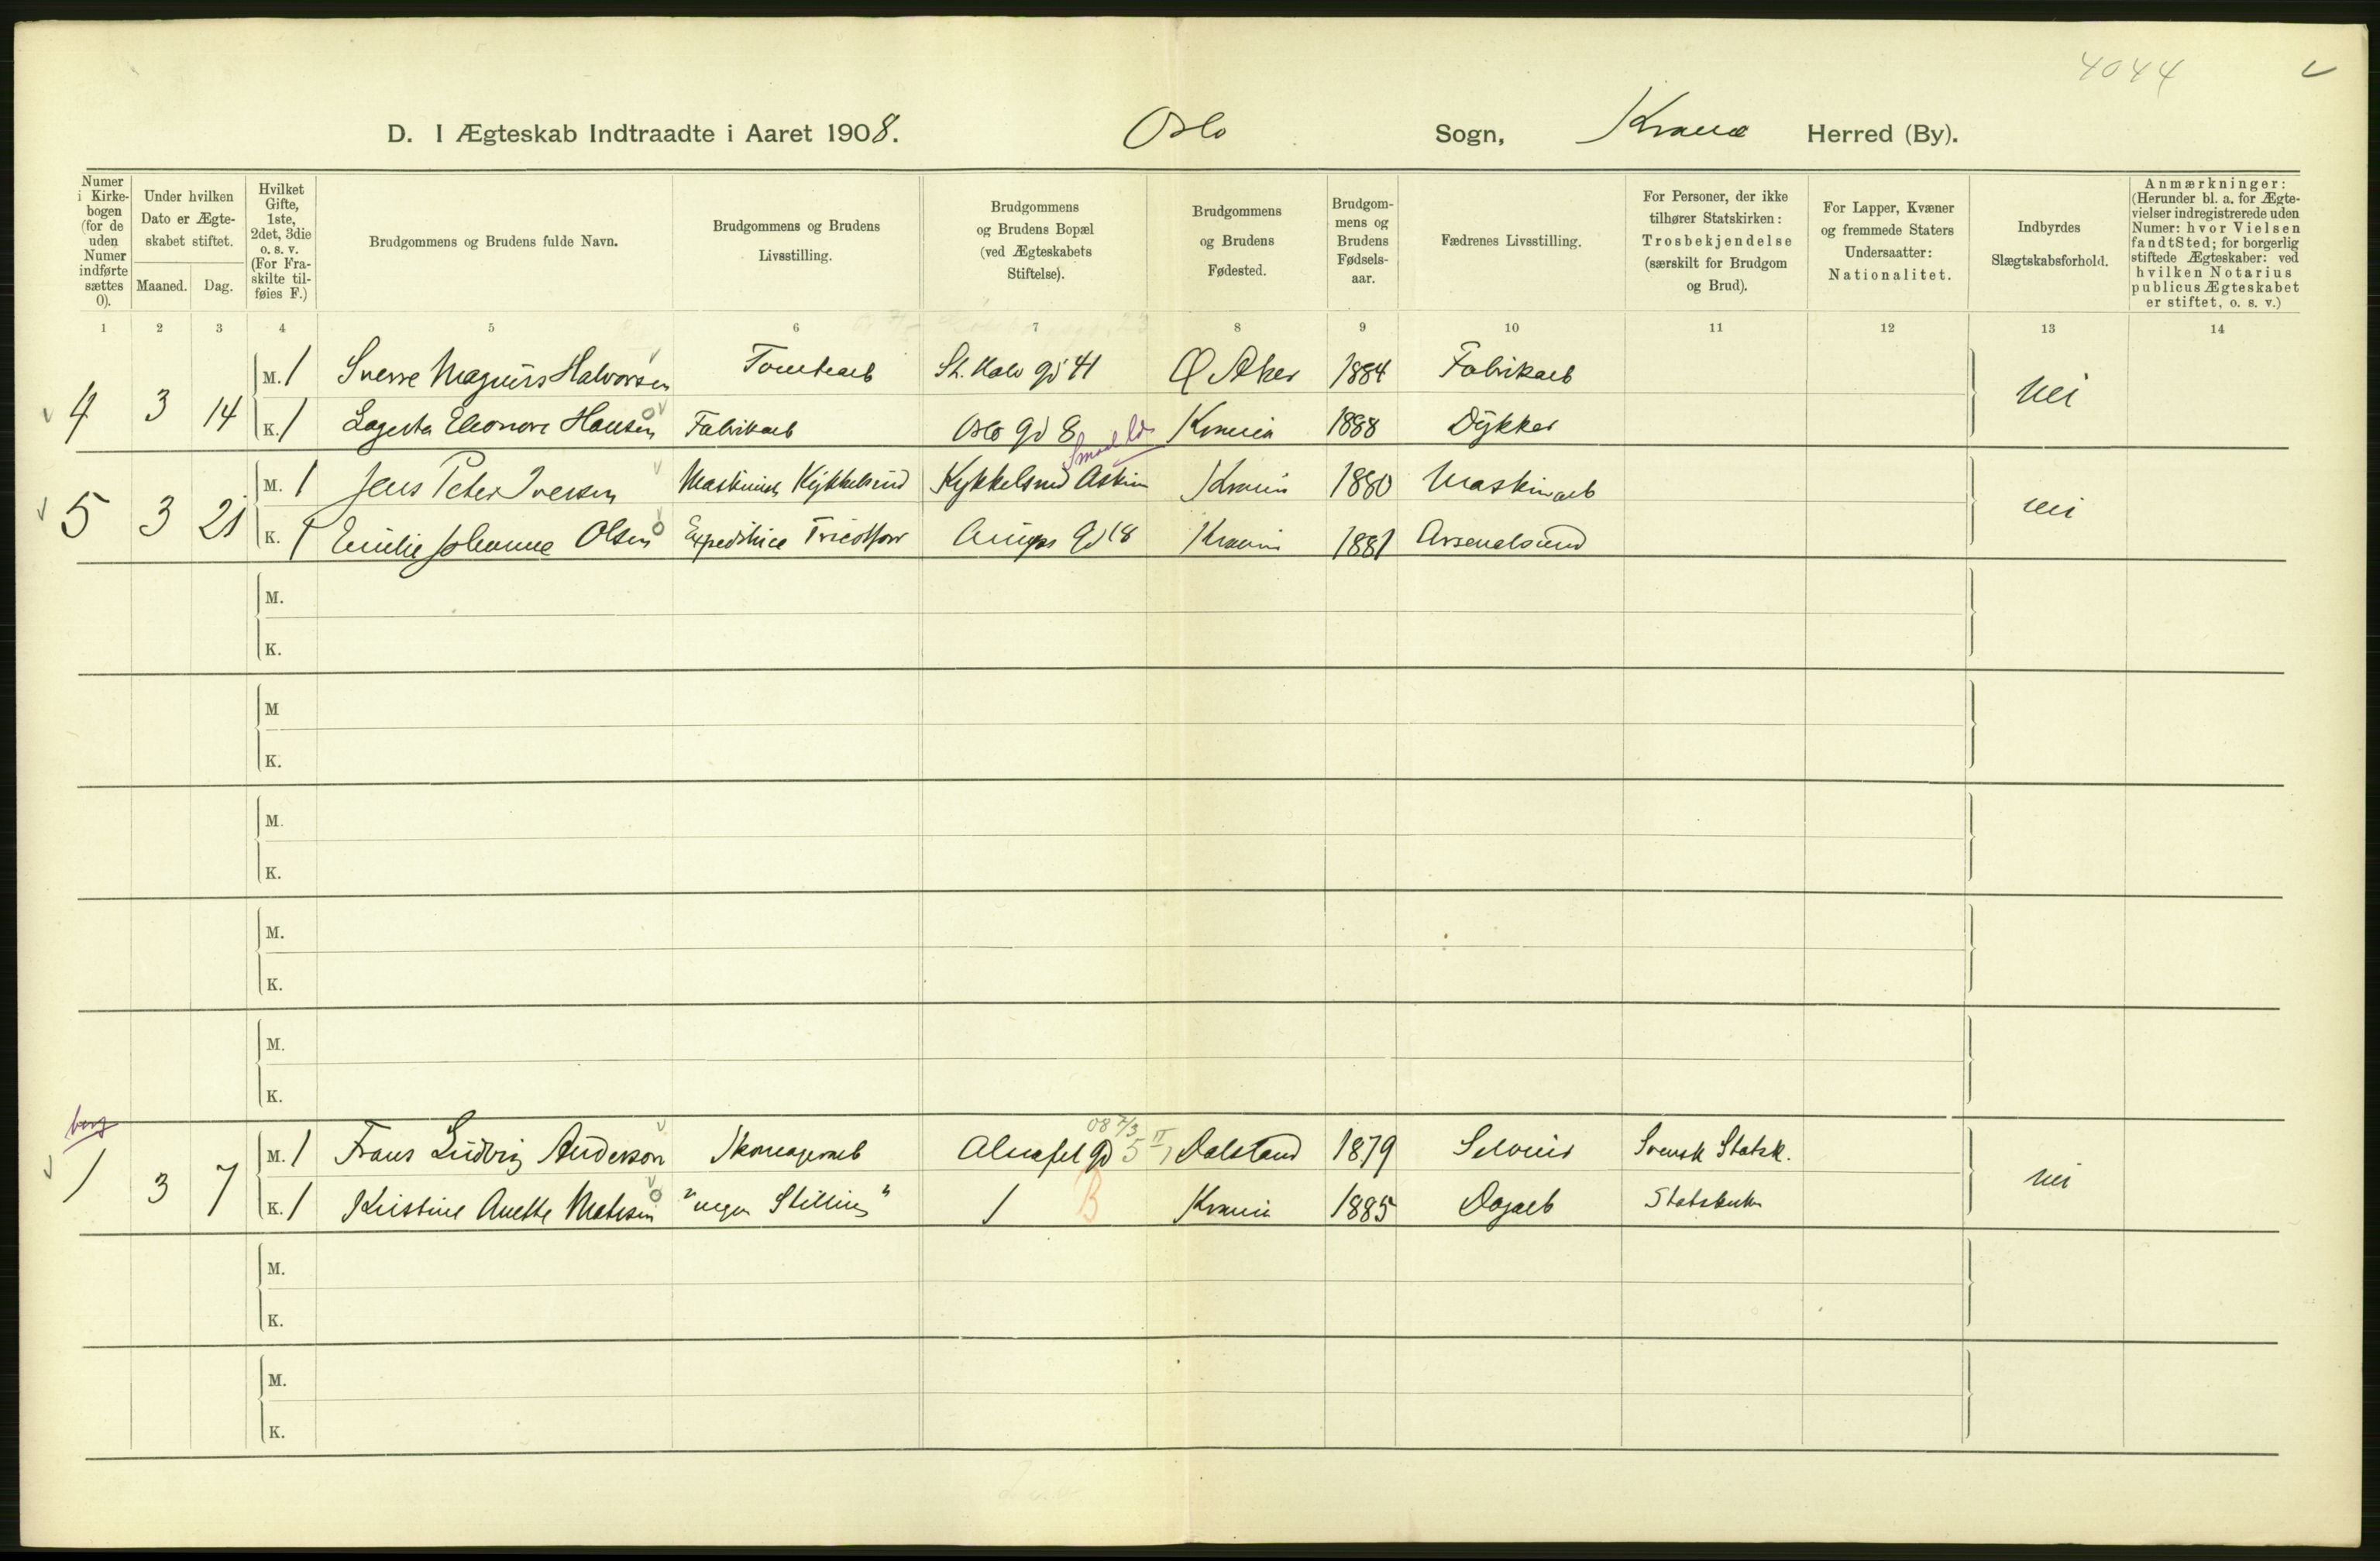 4044
D. I Ægteskab Indtraadte i Aaret 1908. Oslo Sogn, Herred (By).
Numer i Kirkebogen (for de uden Numer indførte sættes 0).
Under hvilken Dato er Ægteskabet stiftet.
Maaned. Dag.
Hvilket Gifte, 1ste, 2det, 3die o. s. v. (For Fraskilte tilføies F.)
Brudgommens og Brudens fulde Navn.
Brudgommens og Brudens Livsstilling.
Brudgommens og Brudens Bopæl (ved Ægteskabets Stiftelse).
Brudgommens og Brudens Fødested.
Brudgommens og Brudens Fødselsaar.
Fædrenes Livsstilling.
For Personer, der ikke tilhører Statskirken: Trosbekjendelse (særskilt for Brudgom og Brud).
For Lapper, Kvæner og fremmede Staters Undersaatter: Nationalitet.
Indbyrdes Slægtskabsforhold.
Anmærkninger: (Herunder bl. a. for Ægtevielser indregistrerede uden Numer: hvor Vielsen fandt Sted; for borgerlig stiftede Ægteskaber: ved hvilken Notarius publicus Ægteskabet er stiftet, o. s. v.)
1 2 3 4 5 6 7 8 9 10 11 12 13 14
4 3 14 M. 1 Sverre Magnus Halvorsen Tomtearb St. Halv gd 41 Ø Aker 1884 Fabrikarb nei
K. 1 Lagerta Eleonore Hansen Fabrikarb Oslo gd 8 Krania 1888 Dykker
5 3 21 M. 1 Jens Peter Iversen Maskinist Kykkelsrud Kykkelsrud Askim Smaalde Krania 1880 Maskinarb nei
K. 1 Emilie Johanne Olsen Expeditrice Gd 18 Krania 1881
M.
K.
M
K.
M.
K.
M.
K.
M.
K.
borg
1 3 7 M. 1 Frans Ludvig Anderson Skomagerarb Alnafet Gd 5 II Dalsland 1879 Selveier Svensk Statsk. nei
K. 1 Kristine Anette Matisen "ingen Stilling" / B Krania 1885 Dagarb Statskirken
M.
K.
M.
K.